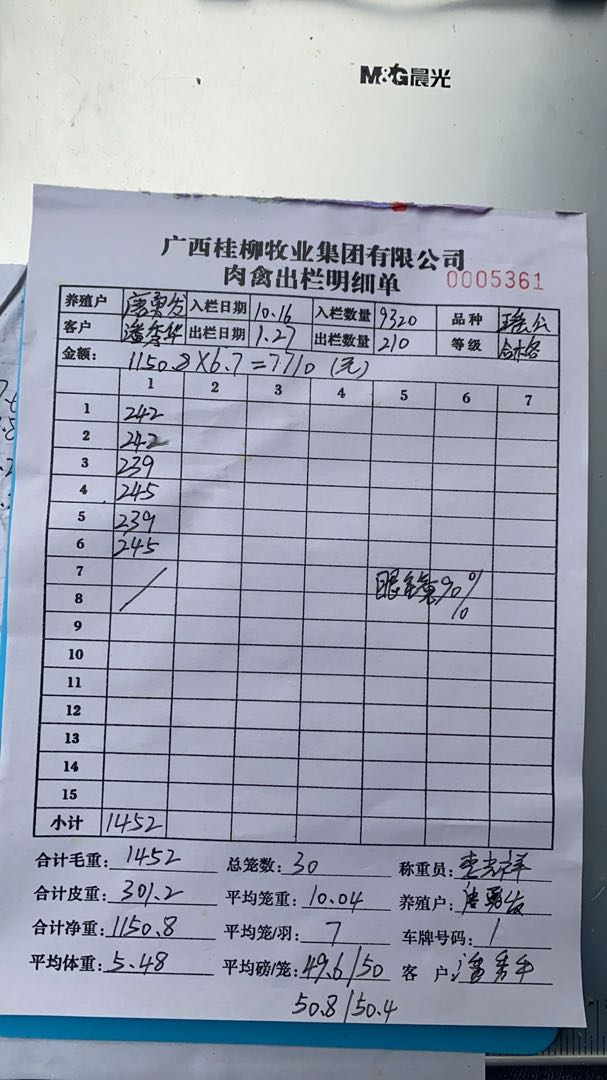 M&G晨光
广西桂柳牧业集团有限公司
肉禽出栏明细单 0005361
养殖户 唐勇发 入栏日期 10.16 入栏数量 9320 品种 瑶公
客户 潘秀华 出栏日期 1.27 出栏数量 210 等级 合格
金额: 1150.8×6.7=7710(元)
1 2 3 4 5 6 7
1 242
2 242
3 239
4 245
5 239
6 245
7
眼镜90%
8
9
10
11
12
13
14
15
小计 1452
合计毛重: 1452 总笼数: 30 称重员:
合计皮重: 301.2 平均笼重: 10.04 养殖户: 唐勇发
合计净重: 1150.8 平均笼/羽: 7 车牌号码: 1
平均体重: 5.48 平均磅/笼: 49.6/50 客 户: 潘秀华
50.8/50.4